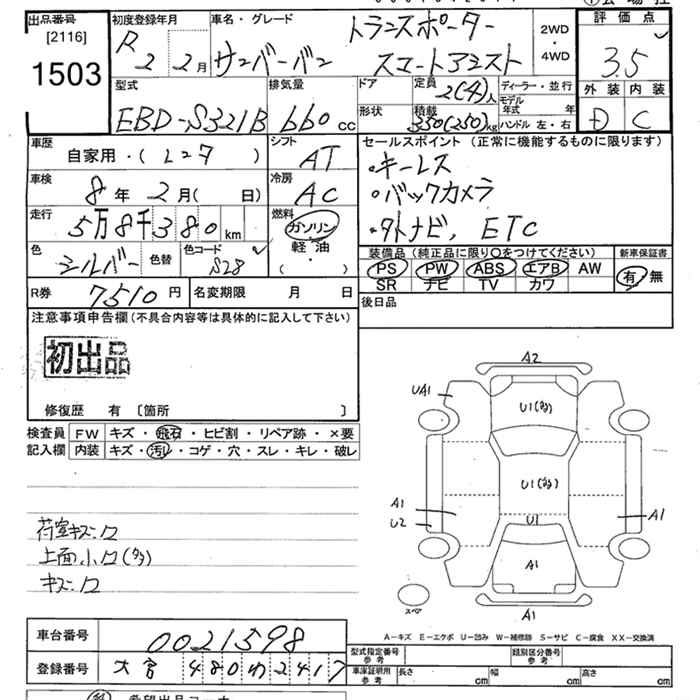 出品番号 [2116] 1503
初度登録年月 R 2 2月
車名・グレード サンバーバン トランスポーター スマートアシスト
2WD・4WD
評価点 3.5
型式 EBD-S321B
排気量 660 cc
ドア
定員 2(4)人
ディーラー・並行
形状
積載 350(250)kg
モデル年式 年
ハンドル 左・右
外装 D 内装 C
車歴 自家用・(レンタ)
シフト AT
セールスポイント (正常に機能するものに限ります)
・キーレス
・バックカメラ
・外ナビ, ETC
車検 8年 2月( 日)
冷房 AC
走行 5万8千380 km
燃料 ガソリン 軽・油 ( )
色 シルバー 色替 色コード S28
装備品 (純正品に限り○をつけてください)
新車保証書
PS PW ABS エアB AW
SR ナビ TV カワ
有・無
R券 7510円 名変期限 月 日
後日品
注意事項申告欄(不具合内容等は具体的に記入して下さい)
初出品
修復歴 有 〔箇所 〕
検査員記入欄
FW キズ・飛石・ヒビ割・リペア跡・×要
内装 キズ・汚れ・コゲ・穴・スレ・キレ・破レ
荷室キズ・ロ
上面小ロ(多)
キズ・ロ
A2
UA1
U1(多)
U1(多)
A1
U2
U1
A1
A1
スペア
A1
A-キズ E-エクボ U-凹み W-補修跡 S-サビ C-腐食 XX-交換済
車台番号 0021598
登録番号 大宮 480わ2417
型式指定番号 参考
類別区分番号 参考
車庫証明用 参考
長さ cm 幅 cm 高さ cm